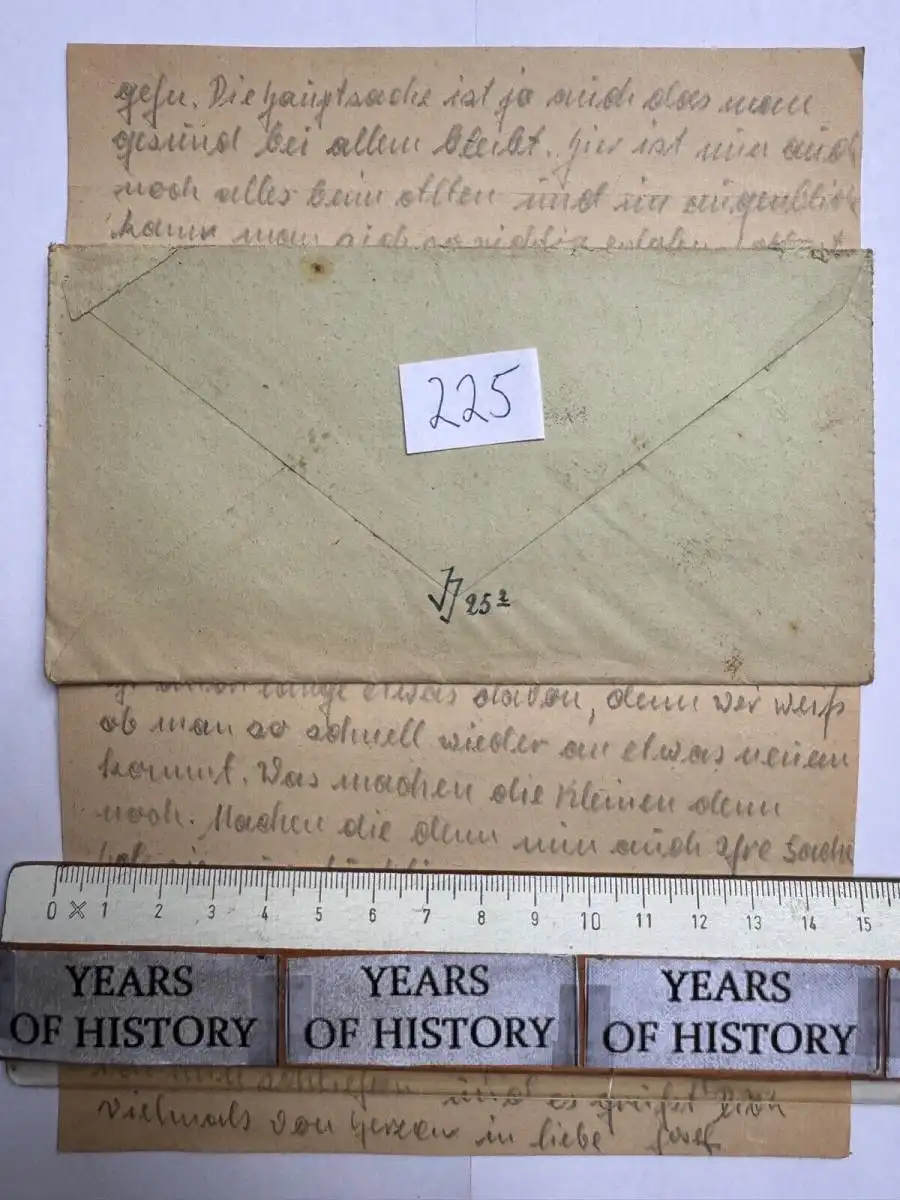 gehn. Die Hauptsache ist ja auch das man
gesund bei allem bleibt. Hier ist nun auch
noch alles beim alten und im augenblick
kann man sich so richtig
225
25²
lange etwas davon, denn wer weiß
ob man so schnell wieder an etwas neuem
kommt. Was machen die Kleinen denn
noch. Machen die denn nun auch Ihre Sache
0 1 2 3 4 5 6 7 8 9 10 11 12 13 14 15
YEARS OF HISTORY
YEARS OF HISTORY
YEARS OF HISTORY
nun schließen und es grüßt Dich
vielmals von Herzen in liebe Josef